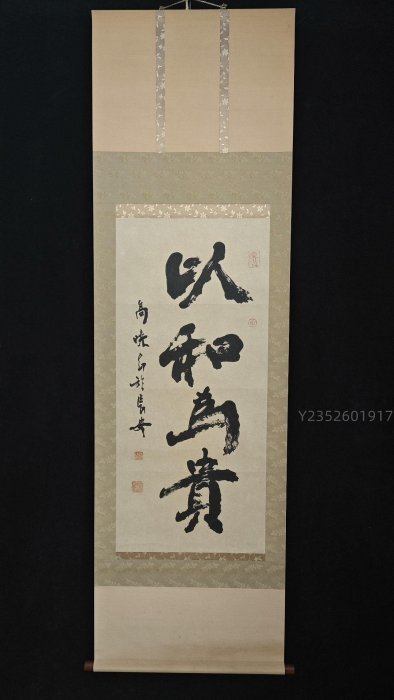 以和為貴
高峽書於長安
Y2352601917